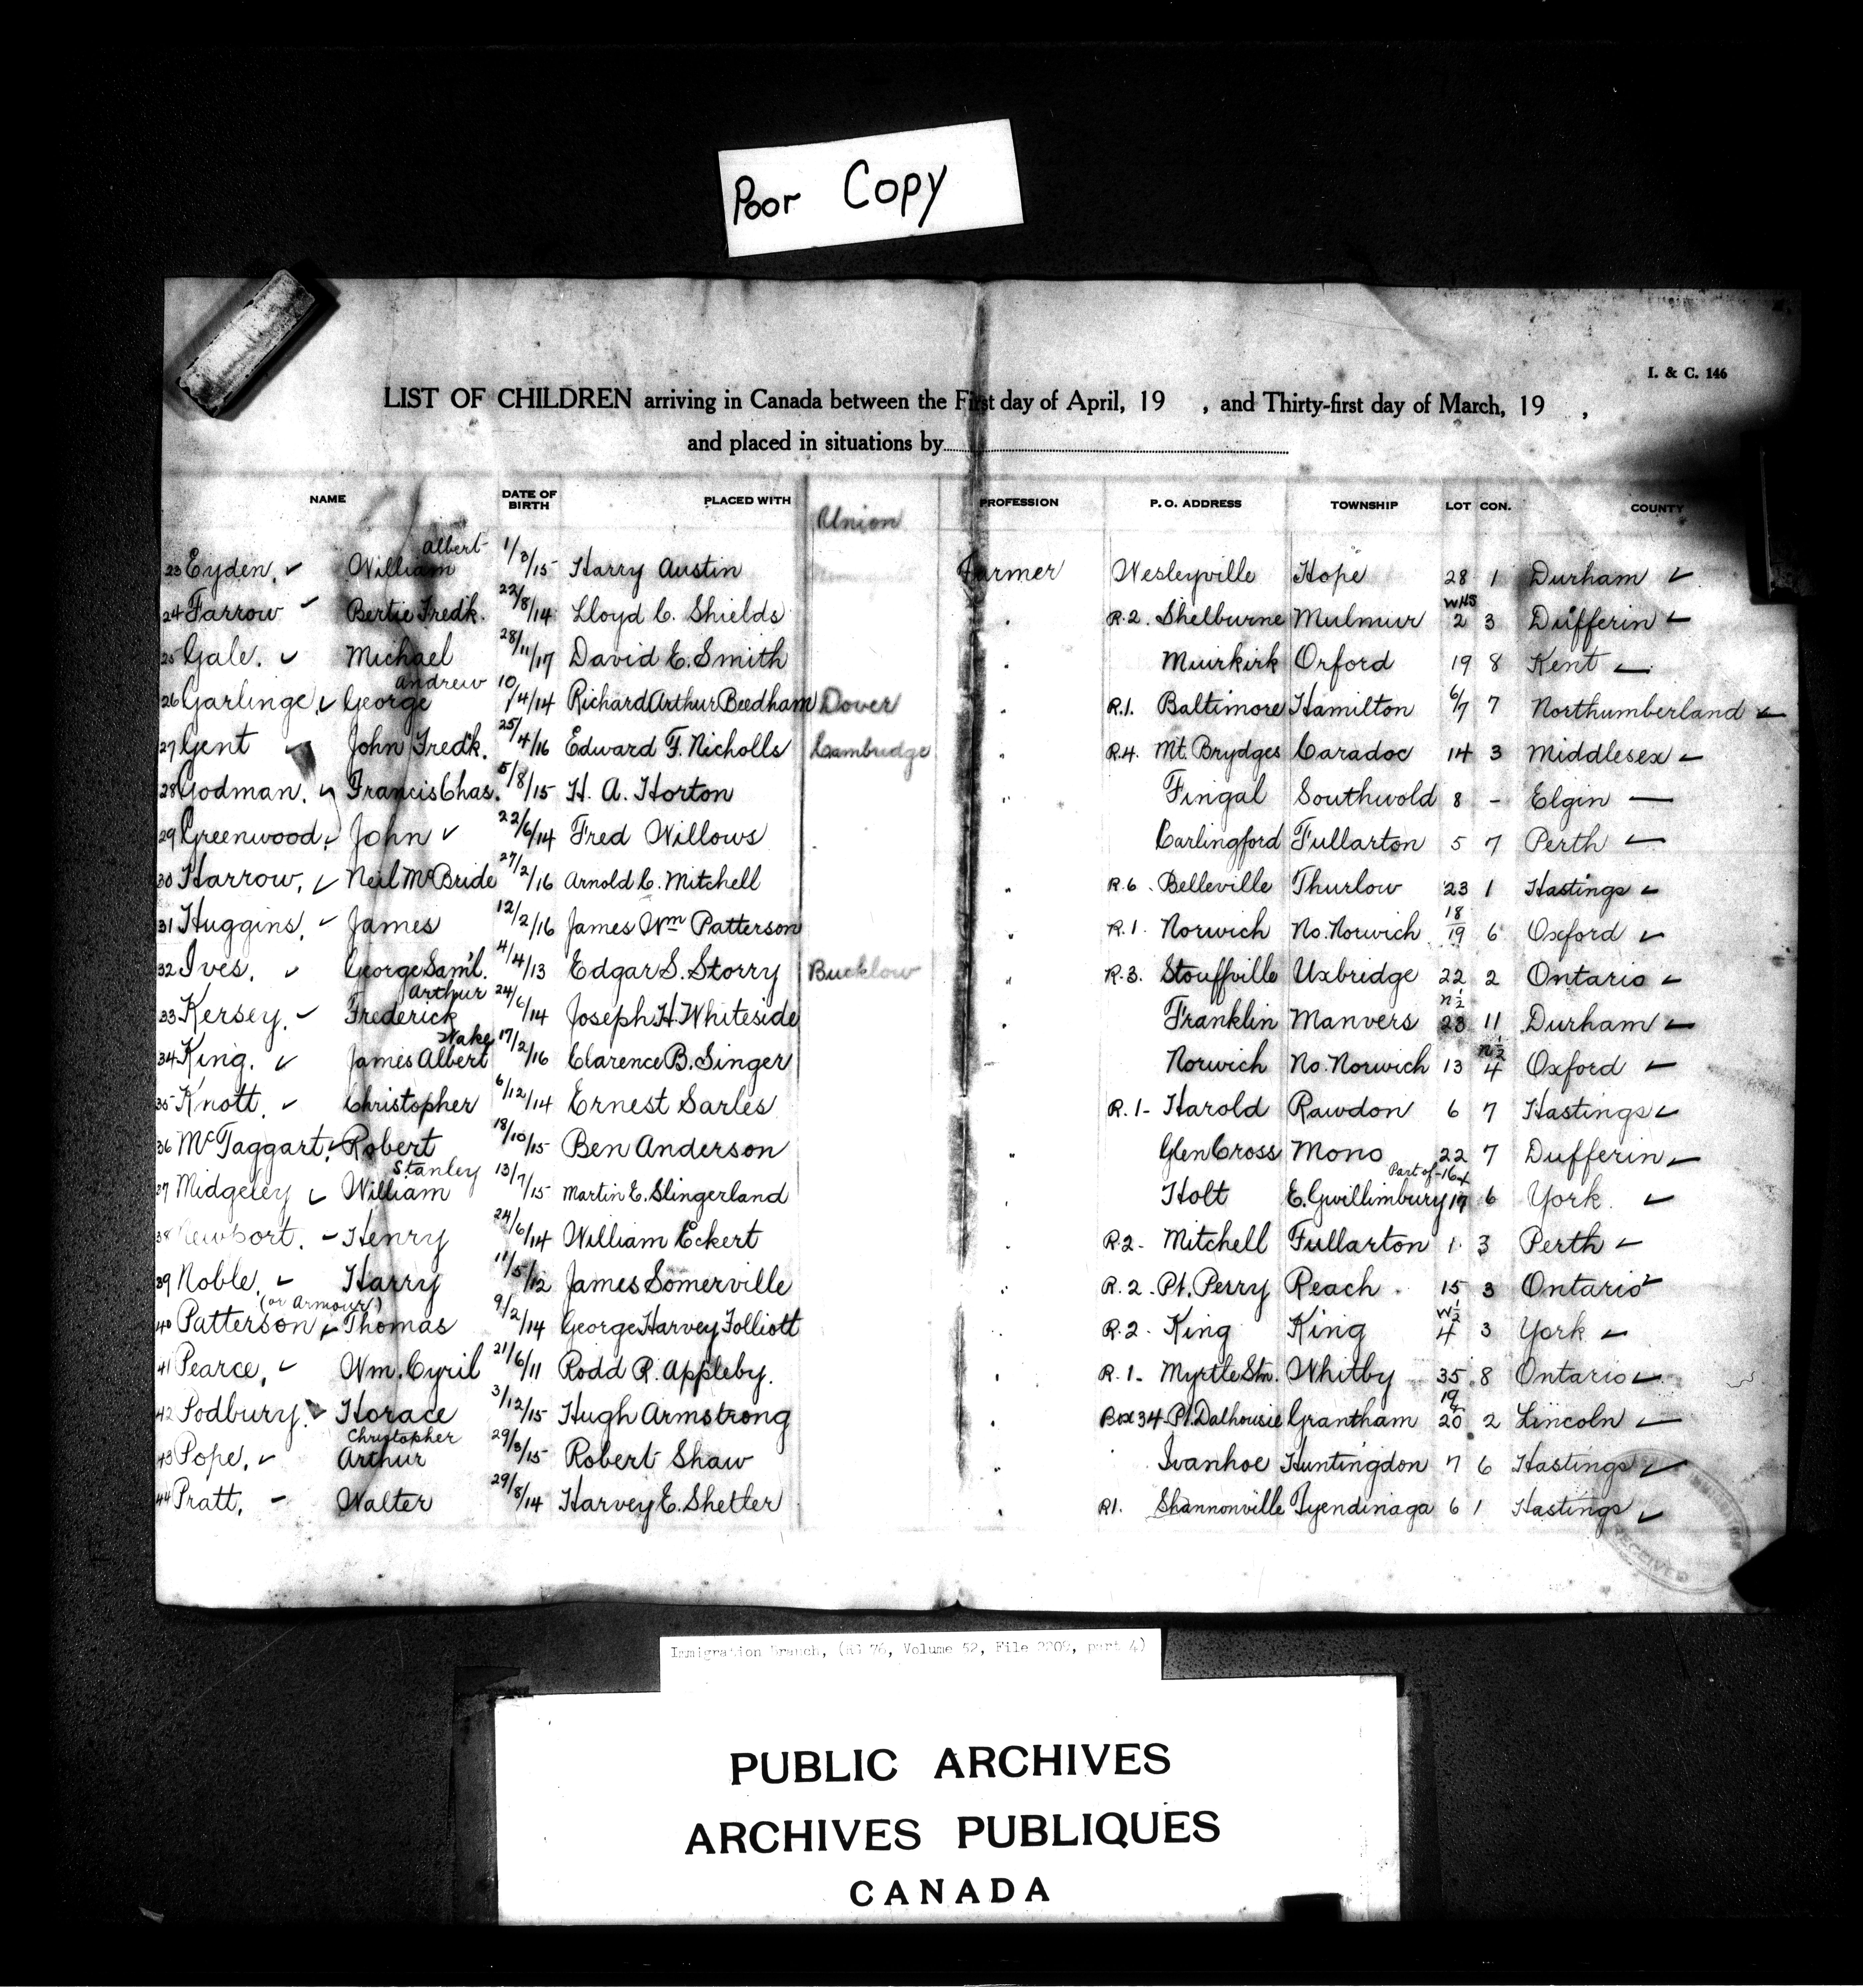 Poor Copy
I. & C. 146
LIST OF CHILDREN arriving in Canada between the First day of April, 19 , and Thirty-first day of March, 19 ,
and placed in situations by
NAME DATE OF BIRTH PLACED WITH Union PROFESSION P. O. ADDRESS TOWNSHIP LOT CON. COUNTY
23 Eyden, ✓ William Albert 1/3/15 Harry Austin Farmer Wesleyville Hope 28 1 Durham ✓
24 Farrow ✓ Bertie Fredk. 22/8/14 Lloyd C. Shields " R.2. Shelburne Mulmur WHS 2 3 Dufferin ✓
25 Gale. ✓ Michael 28/11/17 David E. Smith " Muirkirk Orford 19 8 Kent ✓
26 Garlinge, ✓ George Andrew 10/4/14 Richard Arthur Beedham Dover " R.1. Baltimore Hamilton 6/7 7 Northumberland ✓
27 Gent ✓ John Fredk. 25/4/16 Edward F. Nicholls Cambridge " R.4. Mt. Brydges Caradoc 14 3 Middlesex ✓
28 Godman. ✓ Francis Chas. 5/8/15 H. A. Horton " Fingal Southwold 8 - Elgin —
29 Greenwood, ✓ John ✓ 22/6/14 Fred Willows Carlingford Fullarton 5 7 Perth ✓
30 Harrow, ✓ Neil McBride 27/2/16 Arnold C. Mitchell " R.6. Belleville Thurlow 23 1 Hastings ✓
31 Huggins, ✓ James 12/2/16 James Wm Patterson " R.1. Norwich No. Norwich 18/19 6 Oxford ✓
32 Ives. ✓ George Saml. 4/4/13 Edgar S. Storry Bucklow " R.3. Stouffville Uxbridge 22 2 Ontario ✓
33 Kersey, ✓ Frederick Arthur 24/6/14 Joseph H. Whiteside " Franklin Manvers N½ 23 11 Durham ✓
34 King. ✓ James Albert Wake 17/2/16 Clarence B. Singer Norwich No. Norwich 13 N½ 4 Oxford ✓
35 Knott, ✓ Christopher 6/12/14 Ernest Sarles R. 1- Harold Rawdon 6 7 Hastings ✓
36 McTaggart, ✓ Robert 18/10/15 Ben Anderson " Glen Cross Mono 22 7 Dufferin ✓
37 Midgeley ✓ William Stanley 13/7/15 Martin E. Slingerland " Holt E. Gwillimbury Part of 16+17 6 York. ✓
38 Newport. - Henry 24/6/14 William Eckert " R.2- Mitchell Fullarton 1 3 Perth ✓
39 Noble, ✓ Harry 11/5/12 James Somerville " R. 2. Pt. Perry Reach 15 3 Ontario ✓
40 Patterson (or Armour) ✓ Thomas 9/2/14 George Harvey Folliott " R.2. King King W½ 4 3 York ✓
41 Pearce, ✓ Wm. Cyril 21/6/11 Rodd R. Appleby. " R. 1. Myrtle Stn. Whitby 35 8 Ontario ✓
42 Podbury. ✓ Horace 3/12/15 Hugh Armstrong " Box 34 Pt. Dalhousie Grantham 19/20 2 Lincoln ✓
43 Pope, ✓ Arthur Christopher 29/3/15 Robert Shaw " Ivanhoe Huntingdon 7 6 Hastings ✓
44 Pratt, - Walter 29/8/14 Harvey E. Shetler " R1. Shannonville Tyendinaga 6 1 Hastings ✓
RECEIVED
Immigration Branch, (RG 76, Volume 52, File 2209, part 4)
PUBLIC ARCHIVES
ARCHIVES PUBLIQUES
CANADA